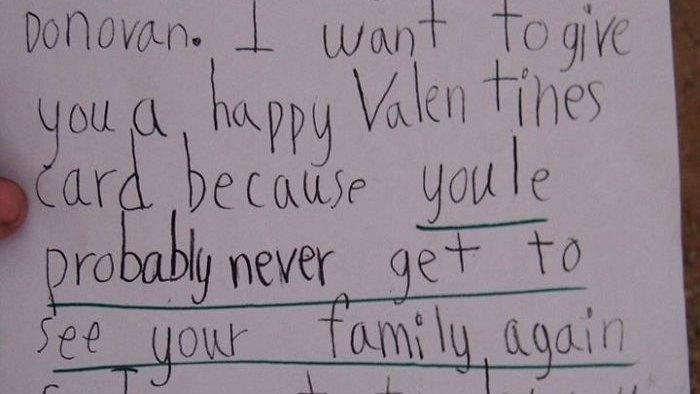 Donovan. I want to give
you a happy Valentines
card because youle
probably never get to
see your family again